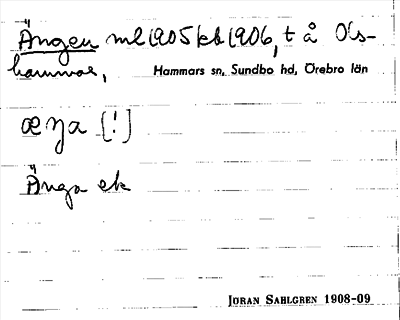 Ängen ml 1905 kb 1906, t å Ols-
hammar, Hammars sn, Sundbo hd, Örebro län
æŋa [!]
Änga ek
JÖRAN SAHLGREN 1908-09